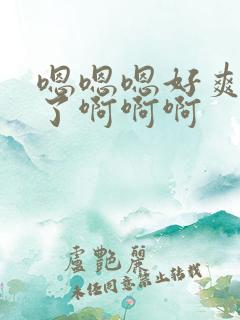 嗯嗯嗯好爽
了啊啊啊
盧艷麗
未经同意禁止转载